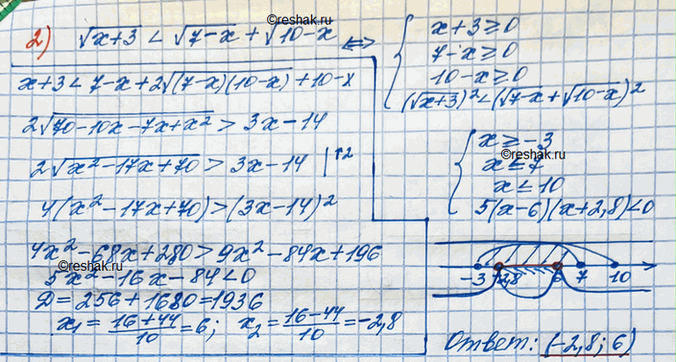 ©reshak.ru
2) √(x+3) < √(7-x) + √(10-x) ⇔ { x+3 ≥ 0
7-x ≥ 0
10-x ≥ 0
(√(x+3))² < (√(7-x) + √(10-x))²
x+3 < 7-x+2√((7-x)(10-x)) + 10-x
2√(70-10x-7x+x²) > 3x-14
2√(x²-17x+70) > 3x-14 |↑2
4(x²-17x+70) > (3x-14)²
4x²-68x+280 > 9x²-84x+196
5x²-16x-84 < 0
D = 256+1680 = 1936
x₁ = (16+44)/10 = 6; x₂ = (16-44)/10 = -2,8
{ x ≥ -3
x ≤ 7
x ≤ 10
5(x-6)(x+2,8) < 0
©reshak.ru
-3 -2,8 6 7 10
Ответ: (-2,8; 6)
©reshak.ru
©reshak.ru